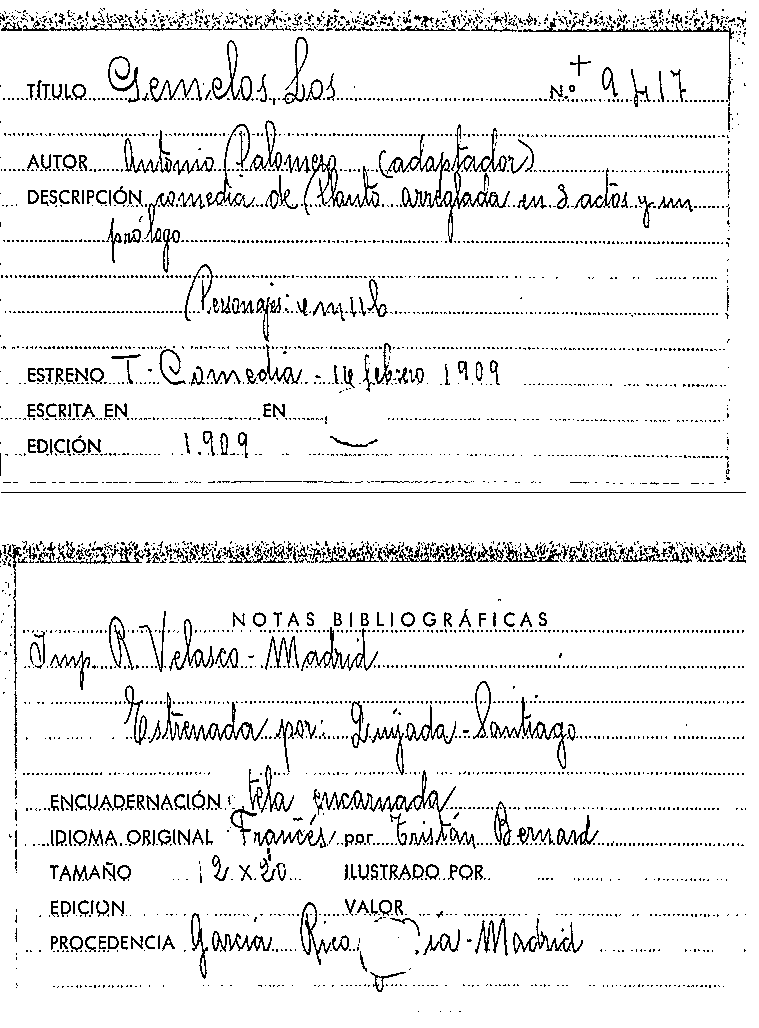 TÍTULO Gemelos, Los N.º + 9417
AUTOR Antonio Palomero (adaptador)
DESCRIPCIÓN comedia de Plauto arreglada en 3 actos y un
prólogo
Personajes:
ESTRENO T. Comedia - 16 febrero 1909
ESCRITA EN EN
EDICIÓN 1.909
NOTAS BIBLIOGRÁFICAS
Imp. R. Velasco - Madrid
Estrenada por: Quijada - Santiago
ENCUADERNACIÓN tela encarnada
IDIOMA ORIGINAL Francés por Tristán Bernard
TAMAÑO 12 x 20 ILUSTRADO POR
EDICION VALOR
PROCEDENCIA García Rico - Madrid